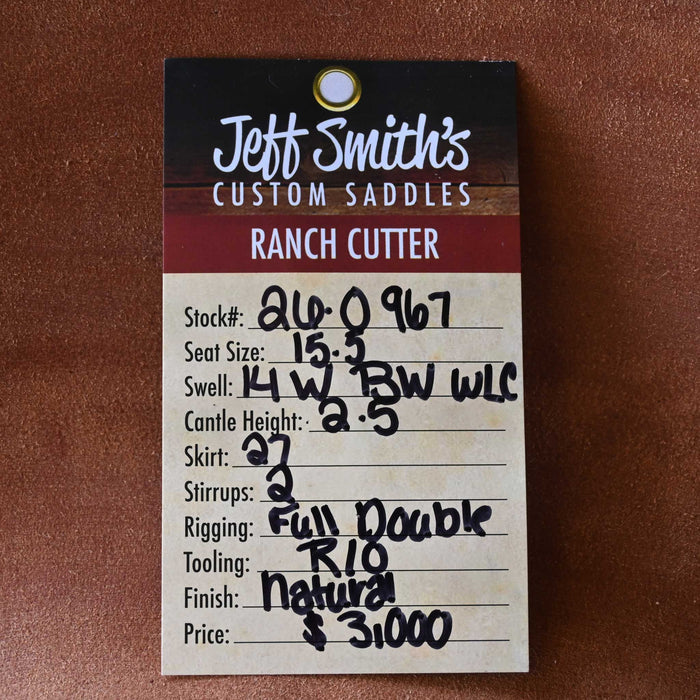 Jeff Smith's
CUSTOM SADDLES
RANCH CUTTER
Stock#: 26.0967
Seat Size: 15.5
Swell: 14 W BW WLC
Cantle Height: 2.5
Skirt: 27
Stirrups: 2
Rigging: Full Double
Tooling: RIO
Finish: Natural
Price: $ 3,000